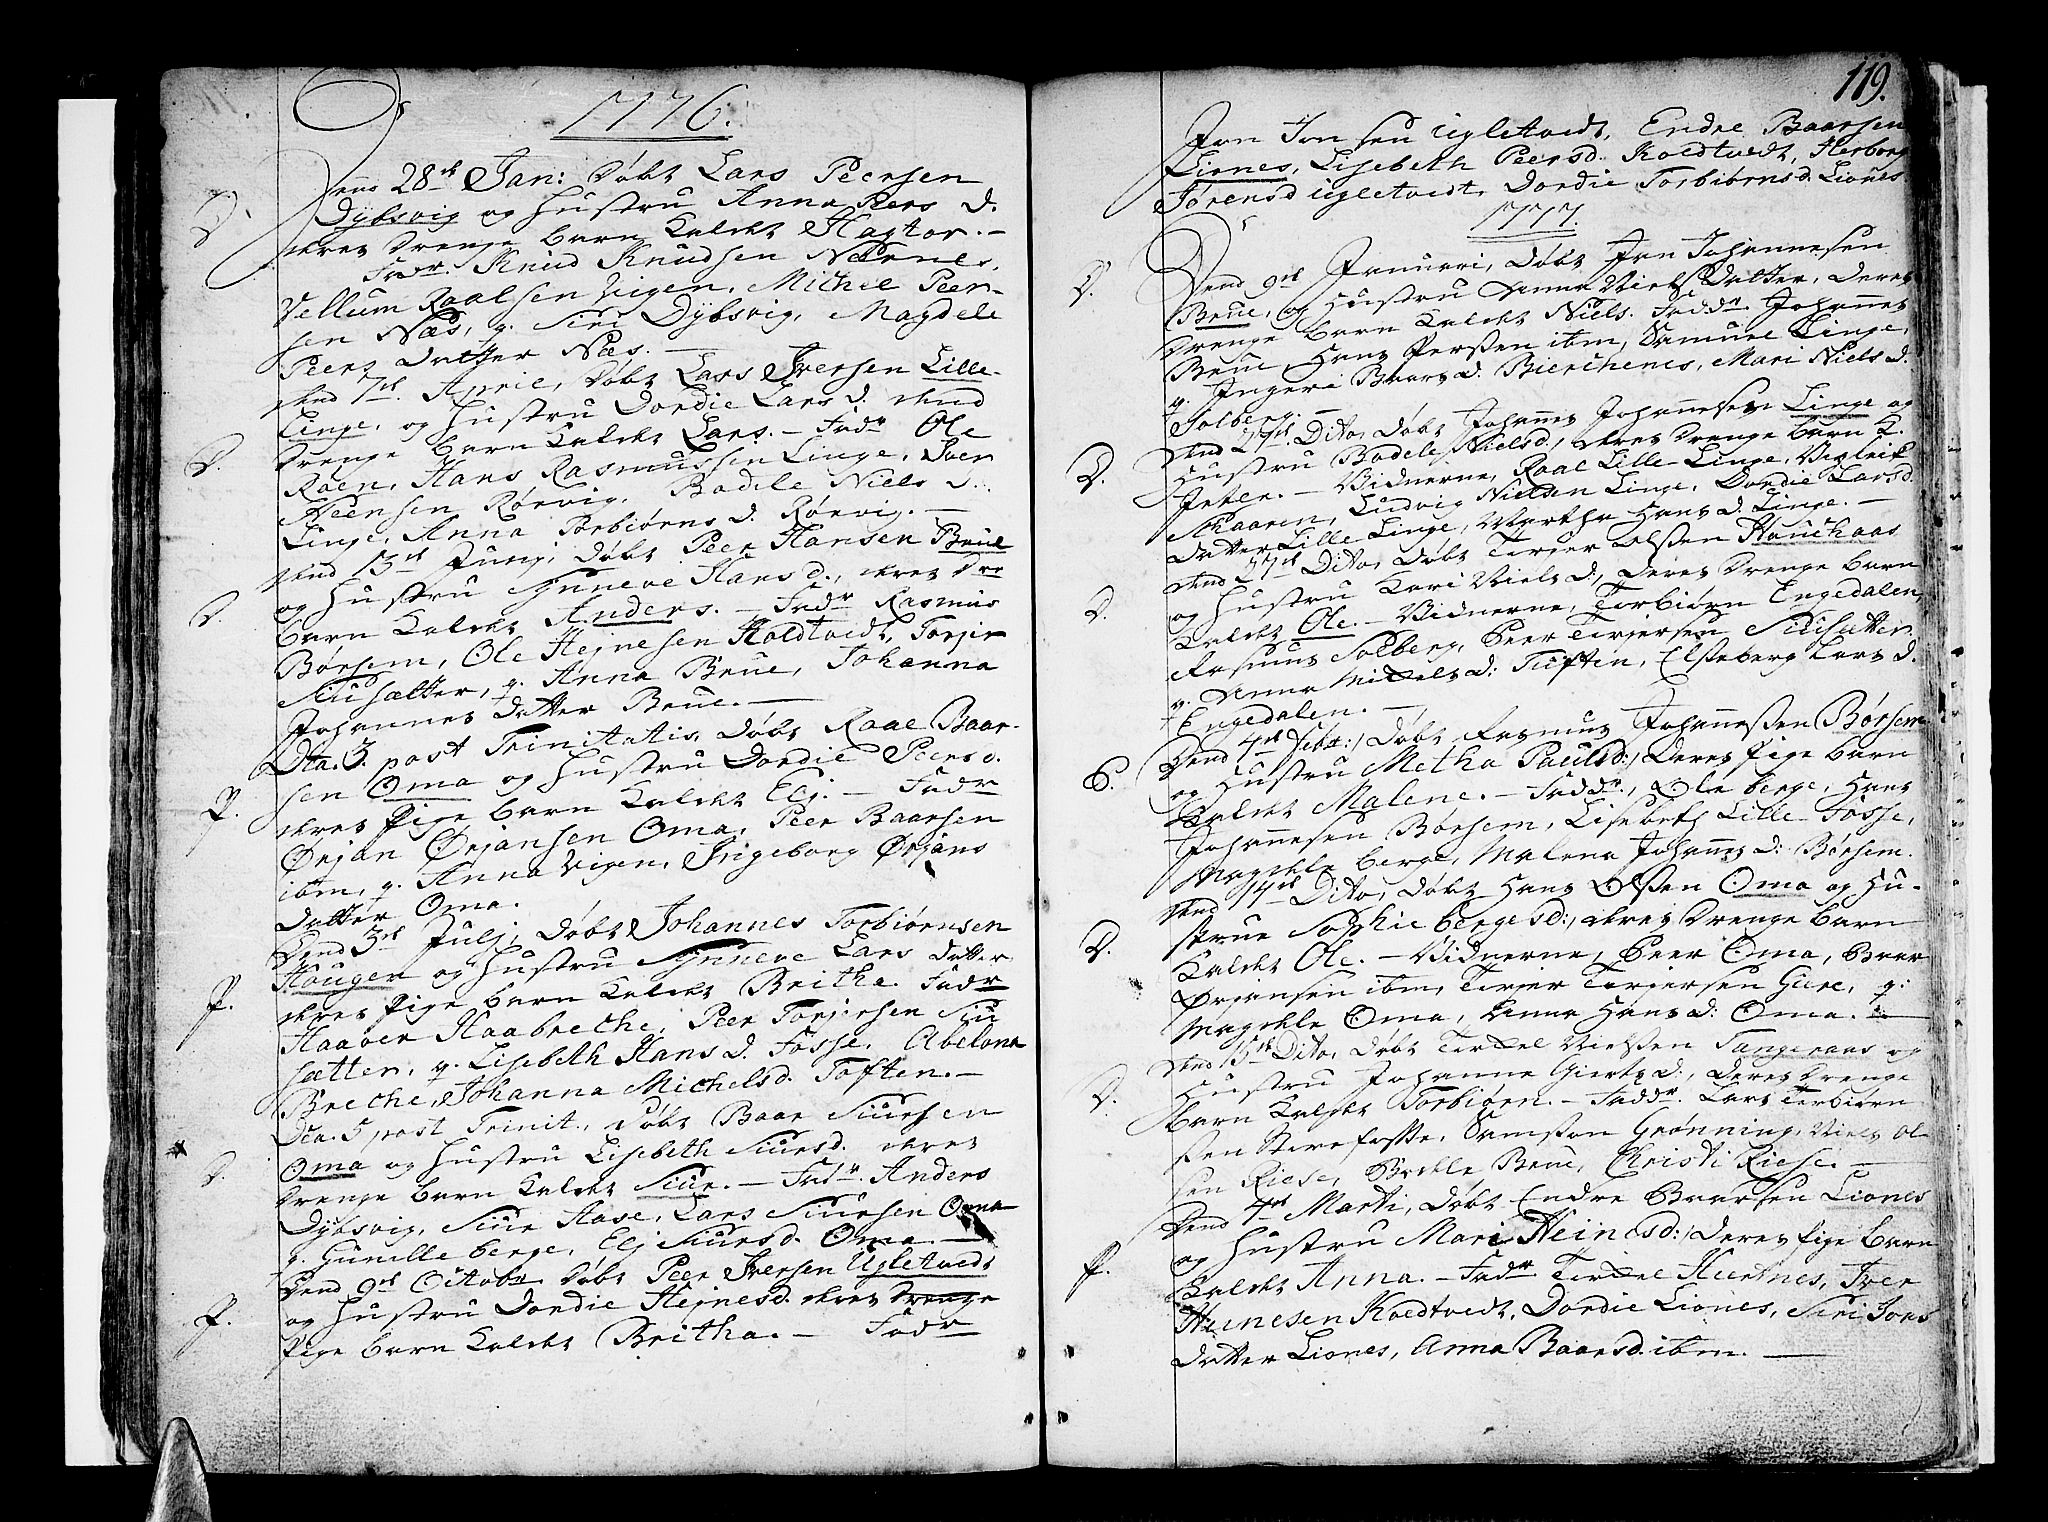 1776.
Dend 28de Jan: døbt Lars Peersen
D. Dybsvig og Hustru Anna Peers D.
deres Drenge barn kaldet Hagtor. –
Fadr. Knud Knudsen Nærnes,
Vellum Roalsen Vigen, Michel Peer-
sen Næs, q. Siri Dybsvig, Magdele
Peers Datter Næs. –
dend 7de April, døbt Lars Iversen Lille-
Linge, og Hustru Dordie Lars D. deres
D. Drenge barn kaldet Lars. – Fadr Ole
Roen, Hans Rasmussen Linge, Iver
Steensen Rørvig, Bodele Niels D.
Linge, Anna Torbiørns D. Rørvig. –
dend 13de Junj, døbt Peer Hansen Brue
og Hustru Synneve Hans d., deres Dre
D. barn kaldet Anders. – Fadr Rasmus
Børsem, Ole Hejnesen Koldtvedt, Torjer
Siusætter, q. Anna Brue, Johanna
Johannes Datter Brue. –
Dca. 3. post Trinitatis, døbt Roal Baar-
sen Oma og Hustru Dordie Peers d.
P. deres Pige barn kaldet Elj. – Fadr
Ørjan Ørjansen Oma, Peer Baarsen
ibm, q. Anna Vigen, Ingeborg Ørjans
Datter Oma.
Dend 3de Julj, døbt Johannes Torbiørnsen
Hougen og Hustru Synneve Lars Datter
P. deres Pige barn kaldet Britha. Fadr
Haaver Haabreche, Peer Torjersen Siu
sætter, q. Lisebeth Hans d. Fosse, Abelona
Breche, Johanna Michels d. Toften. –
Dca. 5 post Trinit., døbt Baar Siursen
Oma og Hustru Lisebeth Siursd. deres
D. Drenge barn kaldet Siur. – Fadr. Anders
Dybsvig, Siur Aase, Lars Siursen Oma
q. Gunilde berge, Elj Siursd. Oma. –
Dend 9de Octobr døbt Peer Iversen Ugletvedt
og Hustru Dordie Hejnesd. deres Drenge
P. Pige barn kaldet Britha. – Fadr
119.
Jon Jonsen Ugletvedt, Endre Baarsen
Liones, Lisebeth Peersd. Koldtvedt, Herborg
Sørensd Ugletvedt, Dordie Torbiørnsd. Liones.
1777.
Dend 9de Januari, døbt Jon Johannesen
D. Brue, og Hustru Anna Niels Datter, deres
Drenge barn kaldet Niels. Faddr. Johannes
Brue, Hans Persen ibm, Samuel Linge,
q. Ingeri Baars d. Bierchenes, Mari Niels d.
Solberg. –
dend 27de Dito, døbt Johannes Johannesen Linge og
D. Hustru Bodele Nielsd., deres Drenge barn K.
Peter. – Vidnerne, Roal Lille Linge, Viglich
Skaaren, Ludvig Nielsen Linge, Dordie Larsd.
Datter Lille Linge, Martha Hans d. Linge. –
dend 27de Dito, døbt Torjer Olssen Houchaas
D. og Hustru Kari Niels d., deres Drenge barn
kaldet Ole. – Vidnerne, Torbiørn Engedalen,
Rasmus Solberg, Peer Torjersen Siusætter,
q. Anna Mickels d: Tuften, Elsseberg Lars d.
Engedalen. –
Dend 4de Febr:, døbt Rasmus Johannessen Børsem
P. og Hustru Metha Paulsd:, deres Pige barn
kaldet Malene. – Faddr., Ole berge, Hans
Johannesen Børsem, Lisebeth Lille Fosse,
Magdele berge, Malena Johannes d: Børsem.
dend 14de Dito, døbt Hans Olssen Oma og Hu-
D. strue Sophie berges d:, deres Drenge barn
kaldet Ole. – Vidnerne, Peer Oma, Baar
Ørjansen ibm, Torjer Torjersen Giere, q:
Magdele Oma, Anna Hans d: Oma. –
dend 15de Dito, døbt Torckel Nielssen Tangeraas og
D. Hustru Johanne Giertz d:, deres Drenge
barn kaldet Torbiørn. – Faddr. Lars Torbiørn
ssen Storefosse, Samson Grønning, Niels Ol-
sen Riese, Bodele Brue, Christi Riese. –
Dend 4de Marti, døbt Endre Baarsen Liones
og Hustru Mari Heinesd:, deres Pige barn
P. kaldet Anna. – Fadr Torckel Hertnes, Iver
Heinesen Koldtvedt, Dordie Liones, Siri Jons
Datter Liones, Anna Baarsd. ibm. –